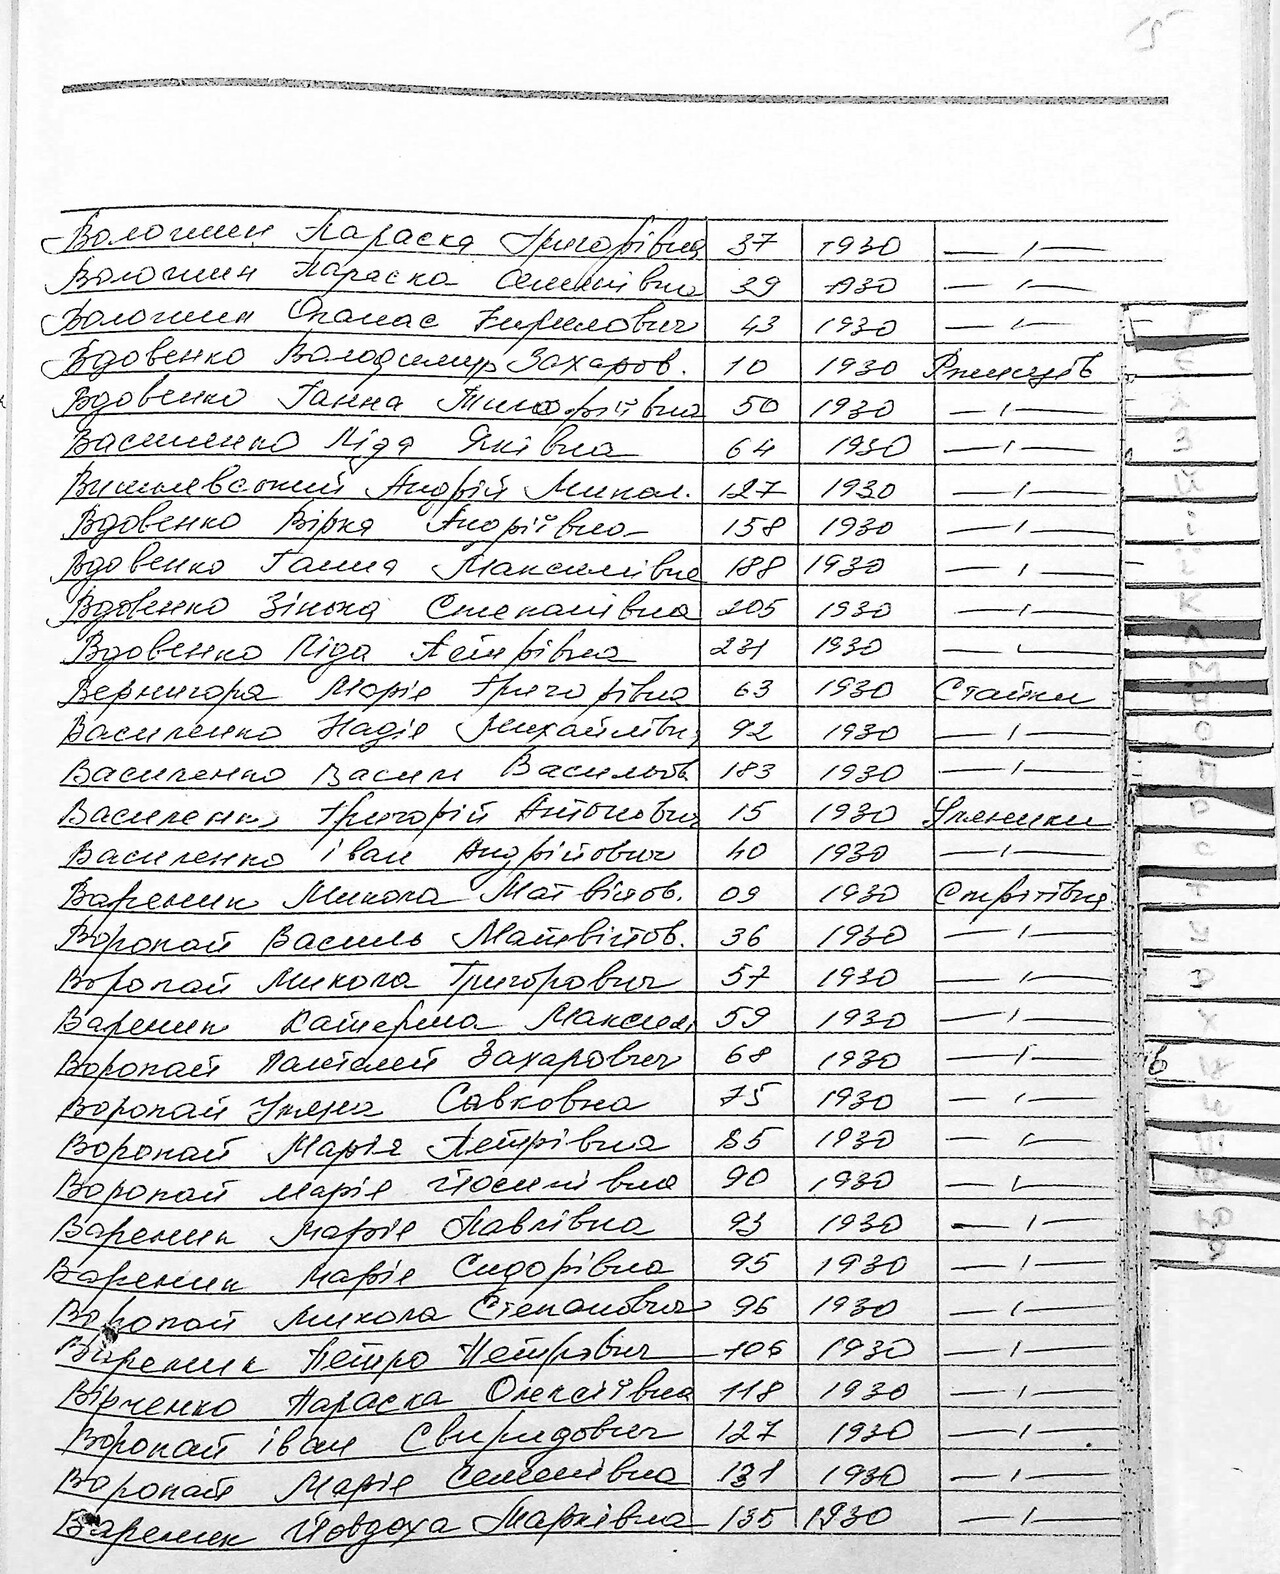 Волошин Параска Григорівна 37 1930 — ı —
Волошин Параска Семенівна 39 1930 — ı —
Волошин Опанас Кирилович 43 1930 — ı —
Вдовенко Володимир Захаров. 10 1930 Ржищів
Вдовенко Ганна Тимофіївна 50 1930 — ı —
Василенко Ліда Яківна 64 1930 — ı —
Вишневський Андрій Микол. 127 1930 — ı —
Вдовенко Вірка Андріївна 158 1930 — ı —
Вдовенко Ганна Максимівна 188 1930 — ı —
Вдовенко Зінька Степанівна 205 1930 — ı —
Вдовенко Ліда Петрівна 231 1930 — ı —
Вернигора Марія Григорівна 63 1930 Стайки
Василенко Надія Михайлівн 92 1930 — ı —
Василенко Василь Васильов 183 1930 — ı —
Василенко Григорій Антонович 15 1930 Уляники
Василенко Іван Андрійович 40 1930 — ı —
Вареник Микола Матвійов. 09 1930 Стрітівка
Воропай Василь Матвійов. 36 1930 — ı —
Воропай Микола Григорович 57 1930 — ı —
Вареник Катерина Максим. 59 1930 — ı —
Воропай Пантелей Захарович 68 1930 — ı —
Воропай Уляна Савковна 75 1930 — ı —
Воропай Марія Петрівна 85 1930 — ı —
Воропай Марія Йосипівна 90 1930 — ı —
Вареник Марія Павлівна 93 1930 — ı —
Вареник Марія Сидорівна 95 1930 — ı —
Воропай Микола Степанович 96 1930 — ı —
Вареник Петро Петрович 106 1930 — ı —
Вірченко Параска Олексіївна 118 1930 — ı —
Воропай Іван Свиридович 127 1930 — ı —
Воропай Марія Семенівна 131 1930 — ı —
Вареник Йовдоха Марківна 135 1930 — ı —